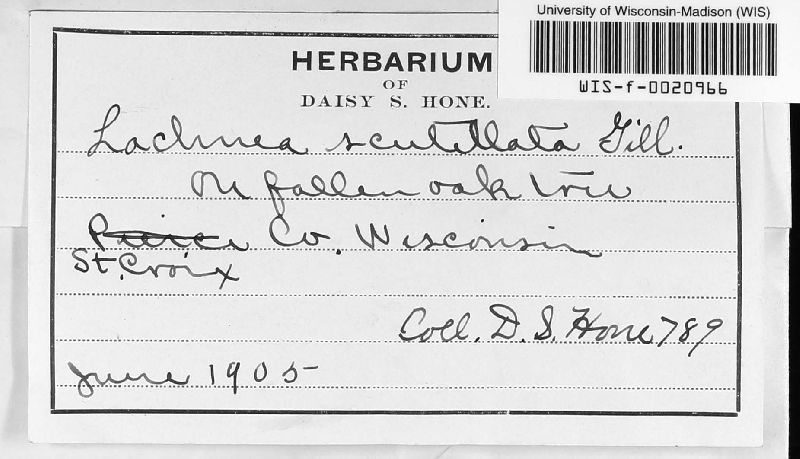 University of Wisconsin-Madison (WIS)
WIS-f-0020966
HERBARIUM
OF
DAISY S. HONE.
Lachnea scutellata Gill.
On fallen oak tree
Pierce Co. Wisconsin
St. Croix
Coll. D. S. Hone 789
June 1905